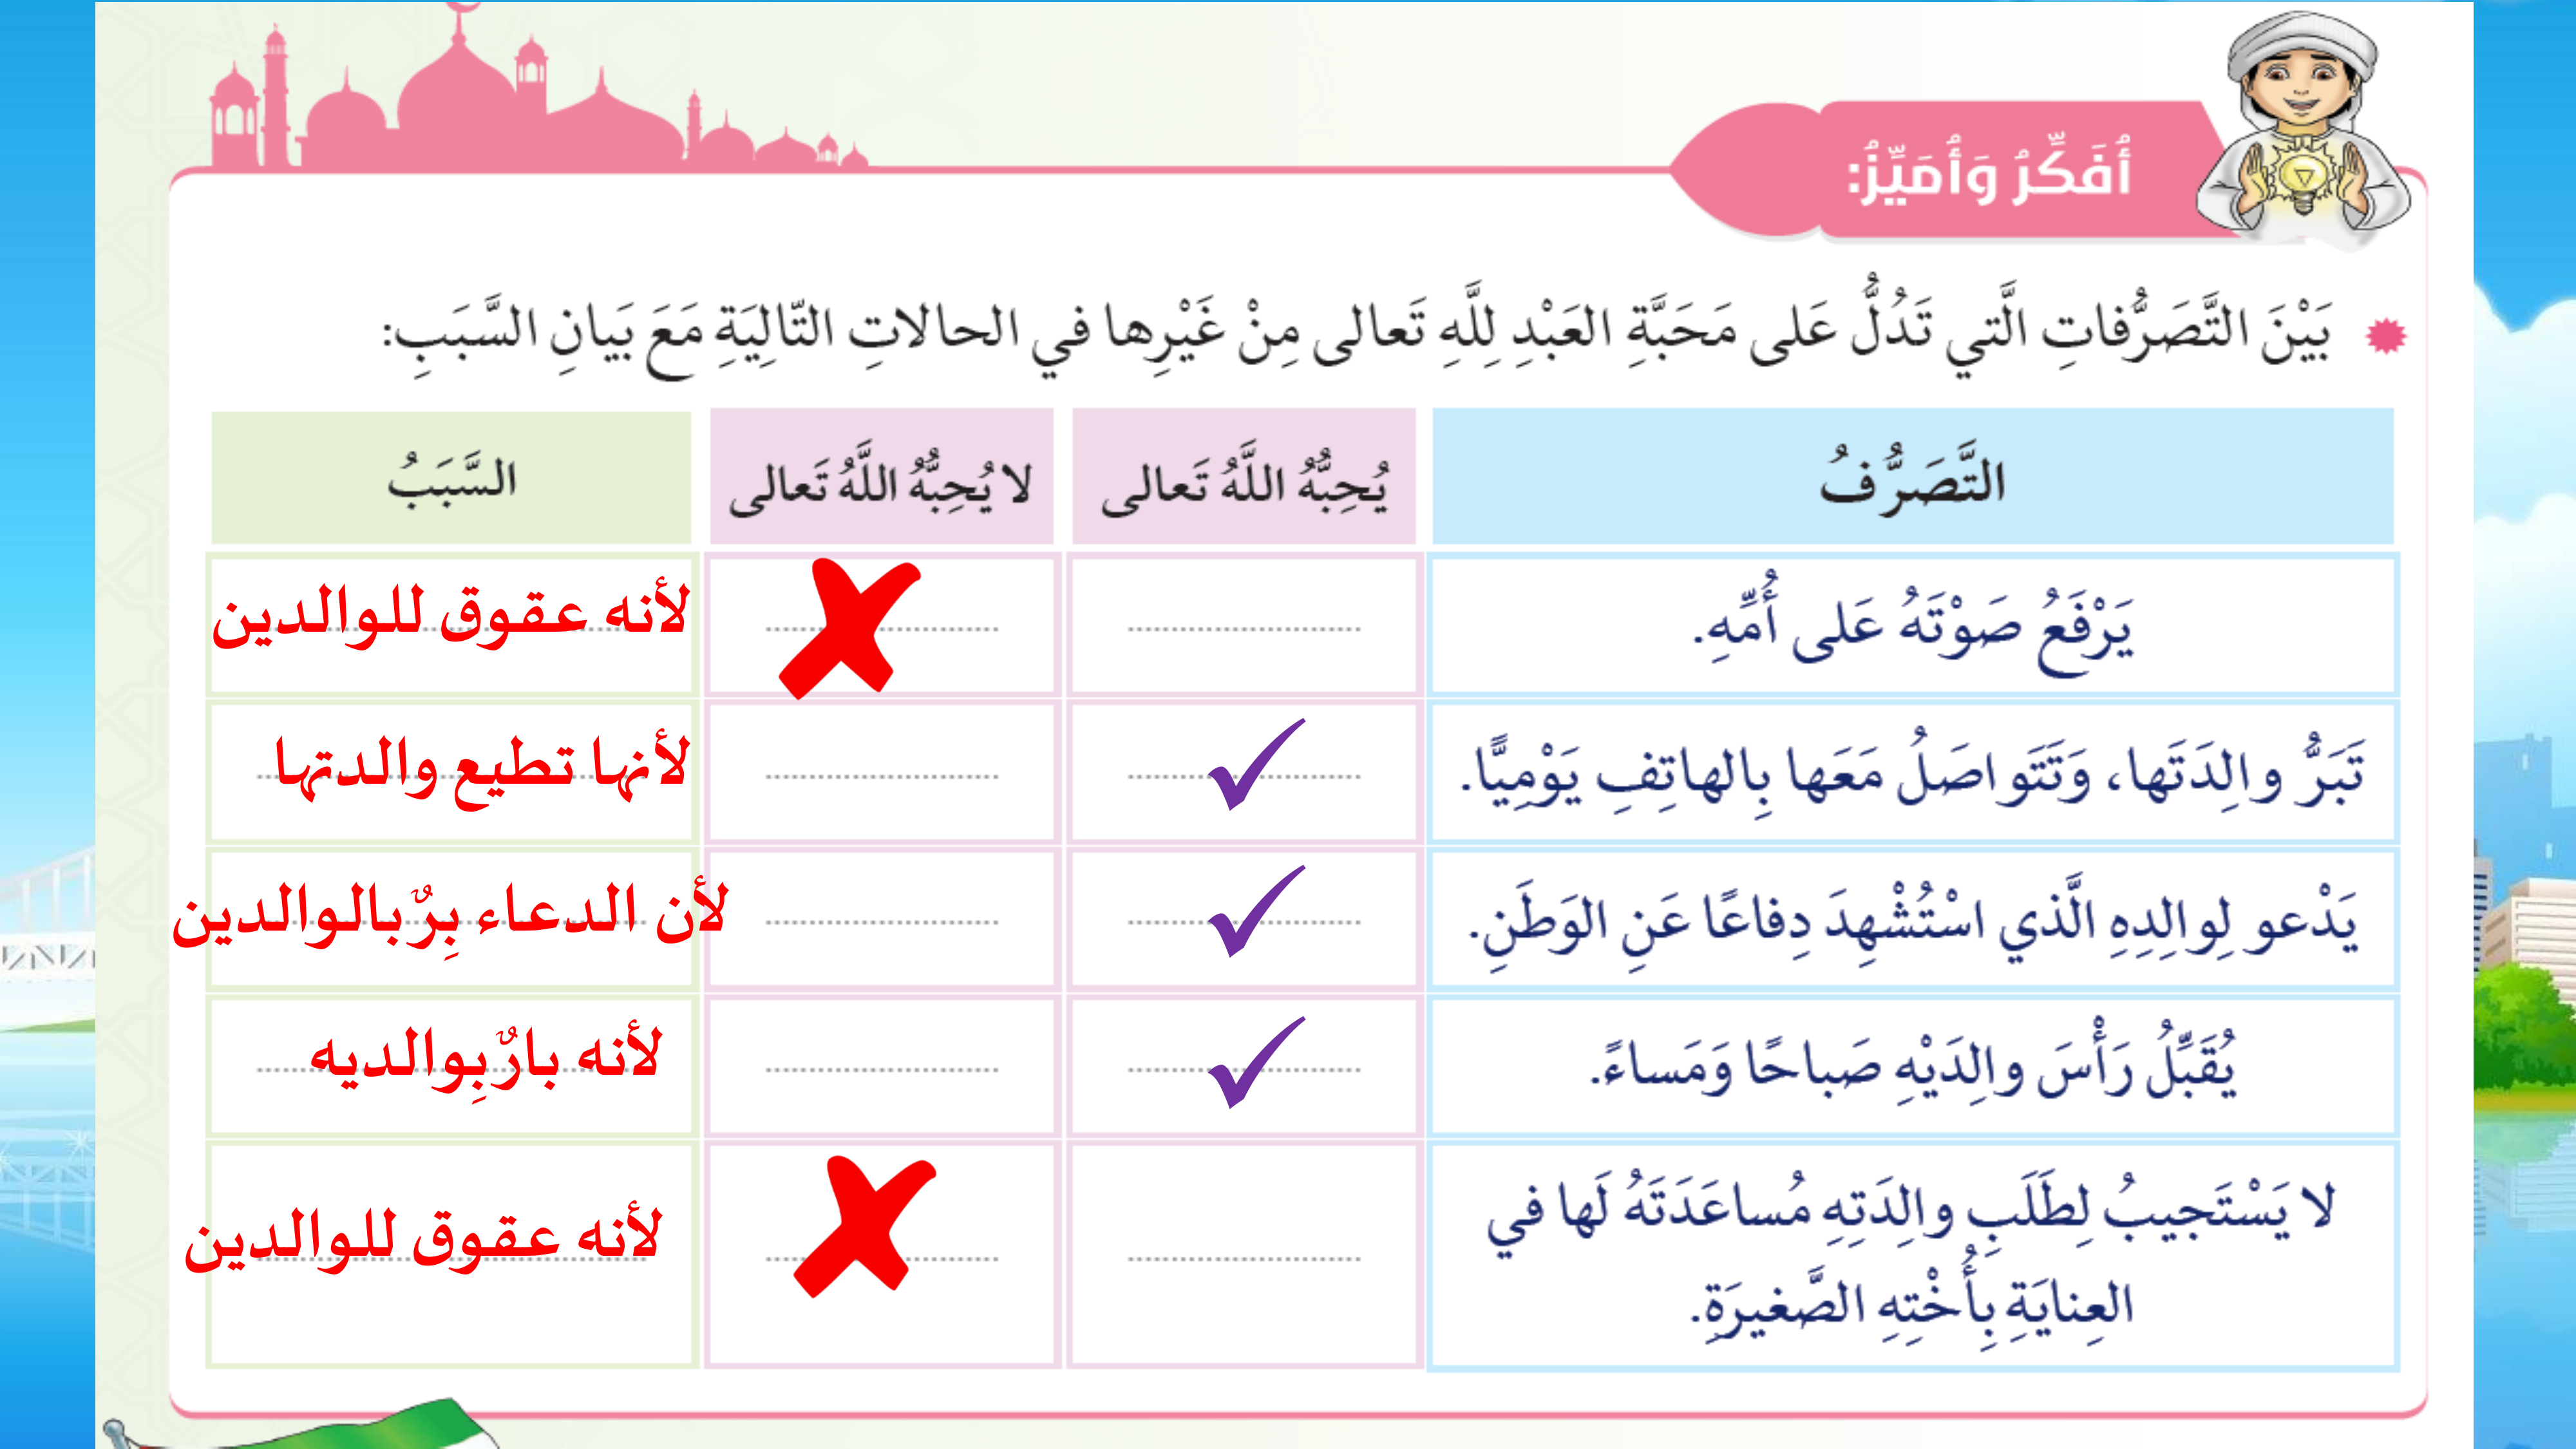 أُفَكِّرُ وَأُمَيِّزُ:
بَيْنَ التَّصَرُّفاتِ الَّتي تَدُلُّ عَلى مَحَبَّةِ العَبْدِ لِلَّهِ تَعالى مِنْ غَيْرِها في الحالاتِ التّالِيَةِ مَعَ بَيانِ السَّبَبِ:
التَّصَرُّفُ يُحِبُّهُ اللَّهُ تَعالى لا يُحِبُّهُ اللَّهُ تَعالى السَّبَبُ
يَرْفَعُ صَوْتَهُ عَلى أُمِّهِ. لأنه عقوق للوالدين
تَبَرُّ والِدَتَها، وَتَتَواصَلُ مَعَها بِالهاتِفِ يَوْمِيًّا. لأنها تطيع والدتها
يَدْعو لِوالِدِهِ الَّذي اسْتُشْهِدَ دِفاعًا عَنِ الوَطَنِ. لأن الدعاء بِرٌ بالوالدين
يُقَبِّلُ رَأْسَ والِدَيْهِ صَباحًا وَمَساءً. لأنه بارٌ بِوالديه
لا يَسْتَجيبُ لِطَلَبِ والِدَتِهِ مُساعَدَتَهُ لَها في لأنه عقوق للوالدين
العِنايَةِ بِأُخْتِهِ الصَّغيرَةِ.